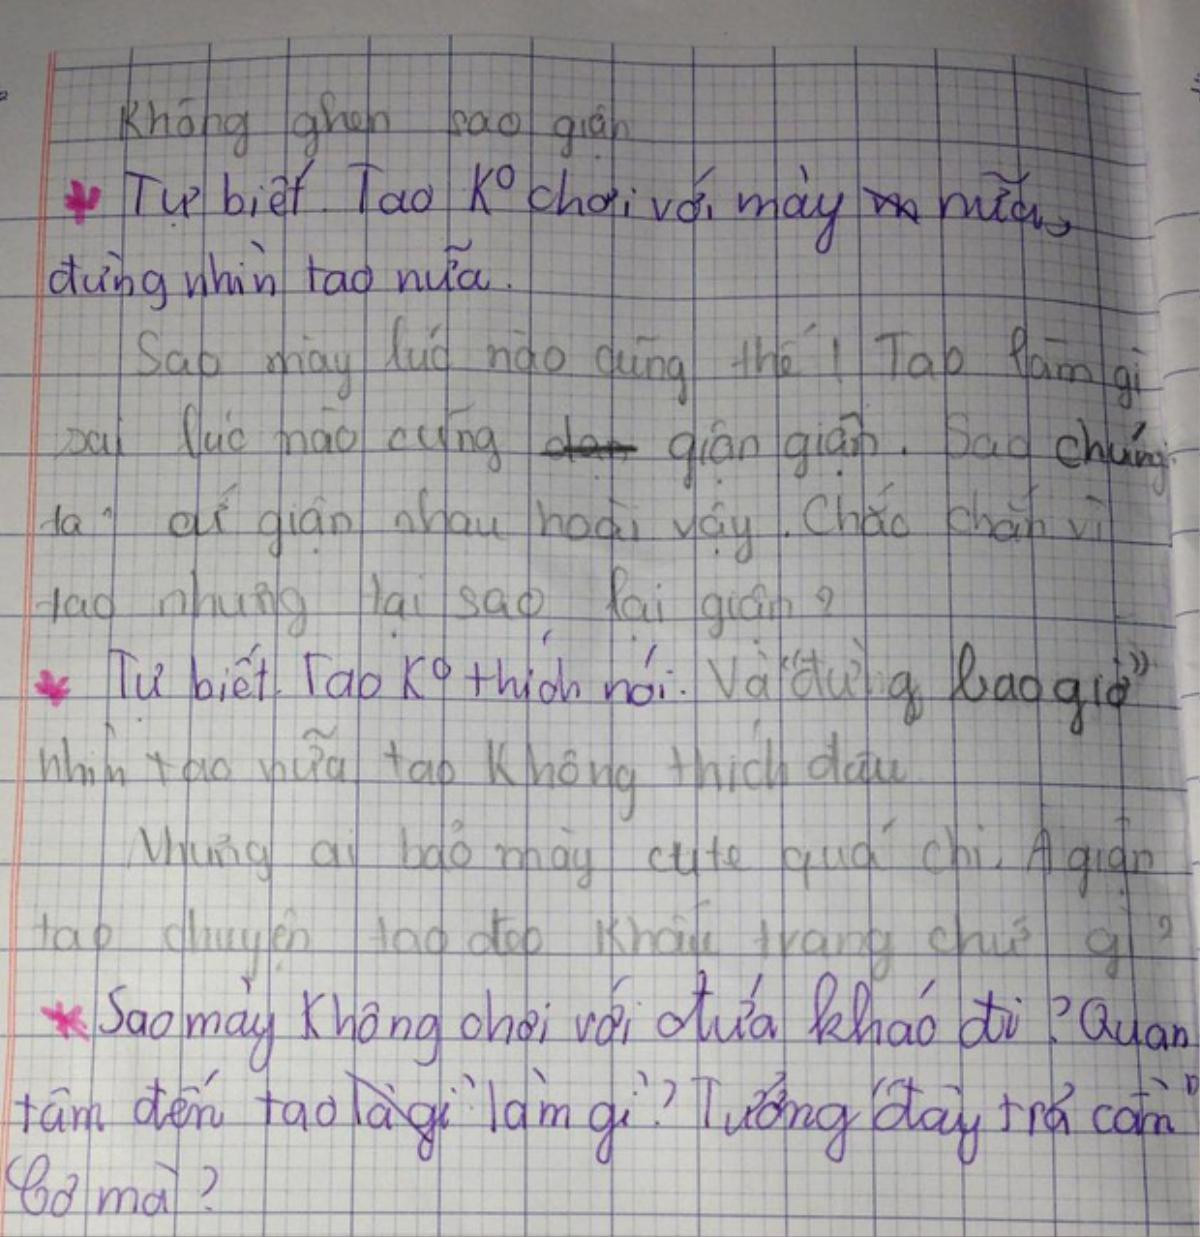 Không ghen sao giận
* Tự biết. Tao K⁰ chơi với mày nữa,
đừng nhìn tao nữa.
Sao mày lúc nào cũng thế! Tao làm gì
sai lúc nào cũng giận giận. Sao chúng
ta cứ giận nhau hoài vậy. Chắc chắn vì
tao nhưng tại sao lại giận?
* Tự biết. Tao K⁰ thích nói. Và "đừng bao giờ"
nhìn tao nữa tao không thích đâu
Nhưng ai bảo mày cute quá chi. A giận
tao chuyện tao đeo khẩu trang chứ gì?
* Sao mày không chơi với đứa khác đi? Quan
tâm đến tao là gì làm gì? Tưởng "đây trả cần"
Cơ mà?